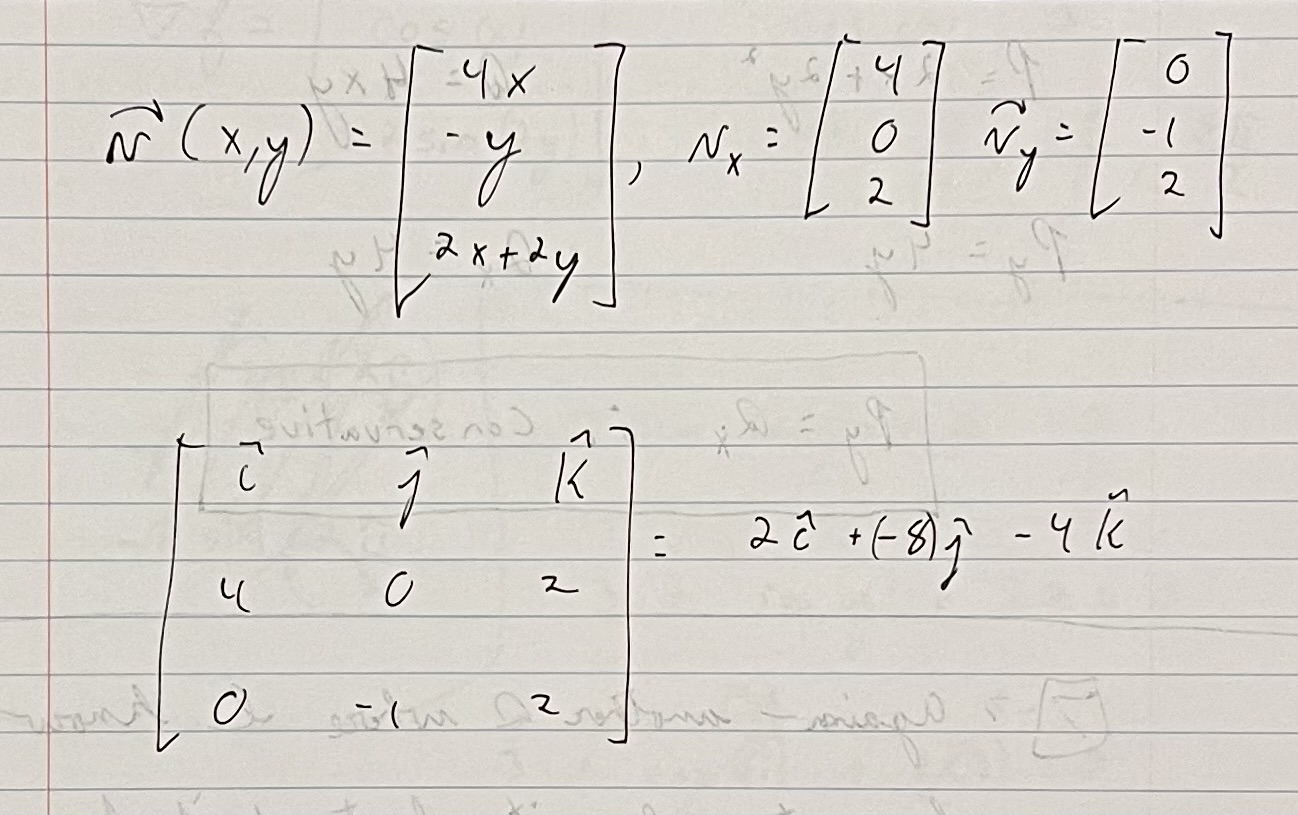 r⃗ (x,y) = [4x, -y, 2x+2y], r_x = [4, 0, 2] r⃗_y = [0, -1, 2]
[î ĵ k̂
4 0 2
0 -1 2] = 2î +(-8)ĵ - 4k̂